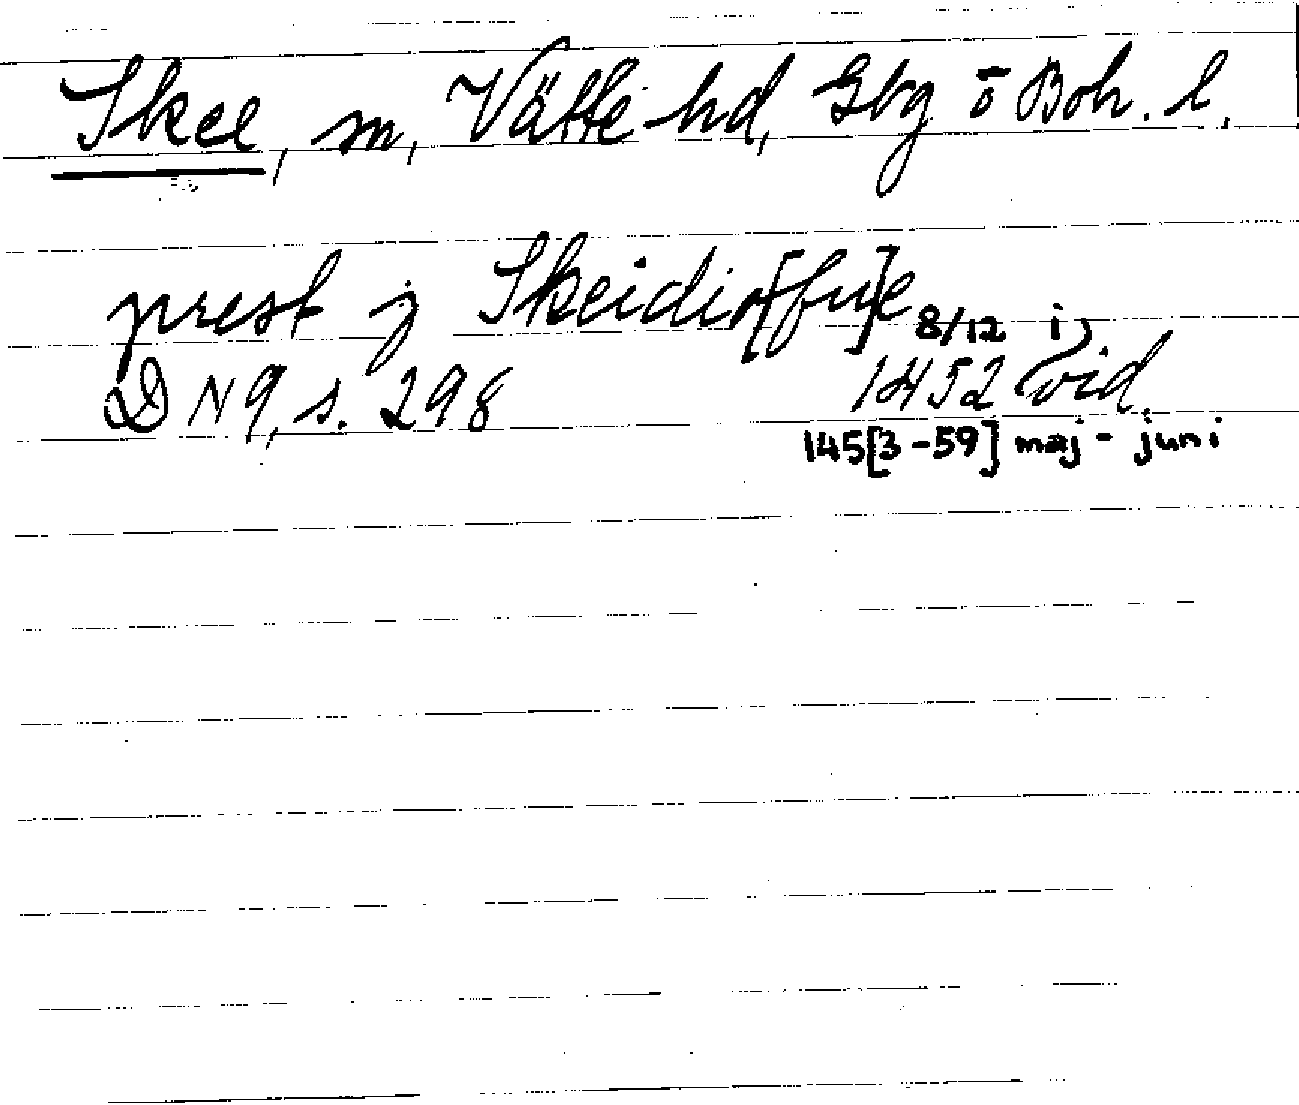 Skee, sn, Vätte hd, Gbg o Boh. l.
prest j Skeidio[fu]e 8/12 i
DN 9, s. 298 1452 vid.
145[3-59] maj - juni